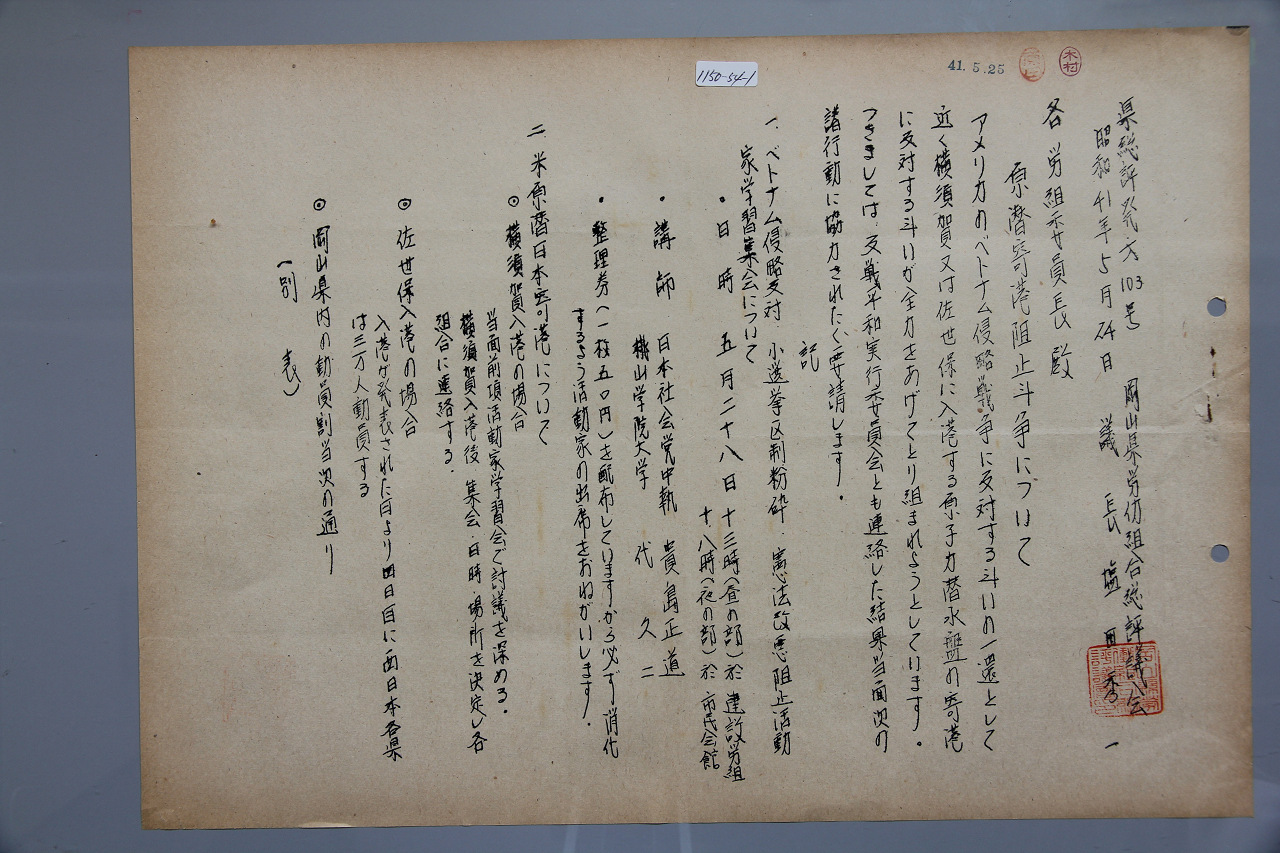 1150-54-1
41.5.25
木村
県総評発才103号
昭和41年5月24日
岡山県労仂組合総評議会
議長 塩田秀一
各労組委員長殿
原潜寄港阻止斗争について
アメリカのベトナム侵略戦争に反対する斗いの一還として
近く横須賀又は佐世保に入港する原子力潜水盤の寄港
に反対する斗いが全力をあげてとり組まれようとしています。
つきましては、反戦平和実行委員会とも連絡した結果当面次の
諸行動に協力されたく要請します。
記
一、ベトナム侵略反対、小選挙区制粉砕、憲法改悪阻止活動
家学習集会について
・日時 五月二十八日 十三時(昼の部)於 建設労組
十八時(夜の部)於 市民会館
・講師 日本社会党中執 貴島正道
桃山学院大学 代久二
・整理券(一枚五〇円)を配布していますから必ず消化
するよう活動家の出席をおねがいします。
二、米原潜日本寄港について
◎横須賀入港の場合
当面前項活動家学習会で討議を深める。
横須賀入港後、集会、日時、場所を決定し各
組合に連絡する。
◎佐世保入港の場合
入港が発表された日より四日目に西日本各県
は三万人動員する
◎岡山県内の動員割当次の通り
(別表)